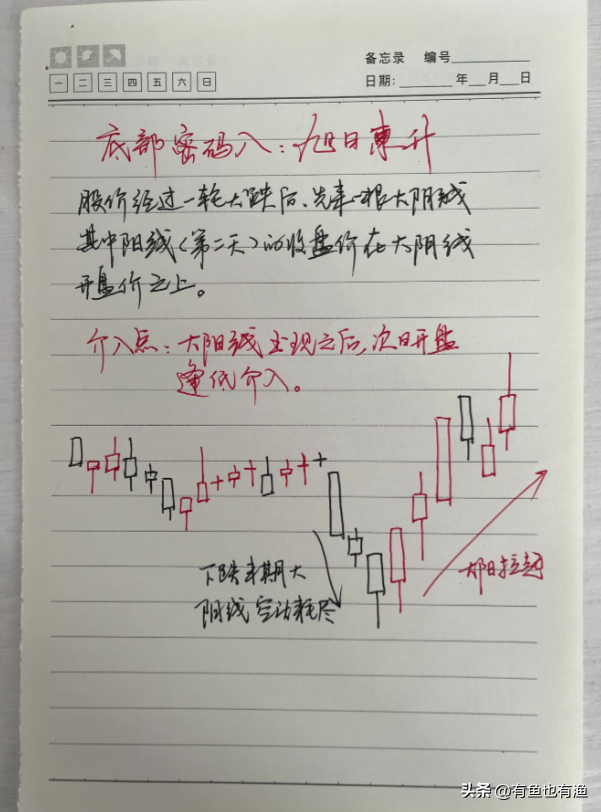 备忘录 编号
一 二 三 四 五 六 日
日期: 年 月 日
底部密码八：旭日東升
股价经过一轮大跌后，先来一根大阴线
其中阳线（第二天）的收盘价在大阴线
开盘价之上。
介入点：大阳线出现之后，次日开盘
逢低介入。
下跌末期大
阴线空动耗尽
大阳拉起
头条 @有鱼也有渔